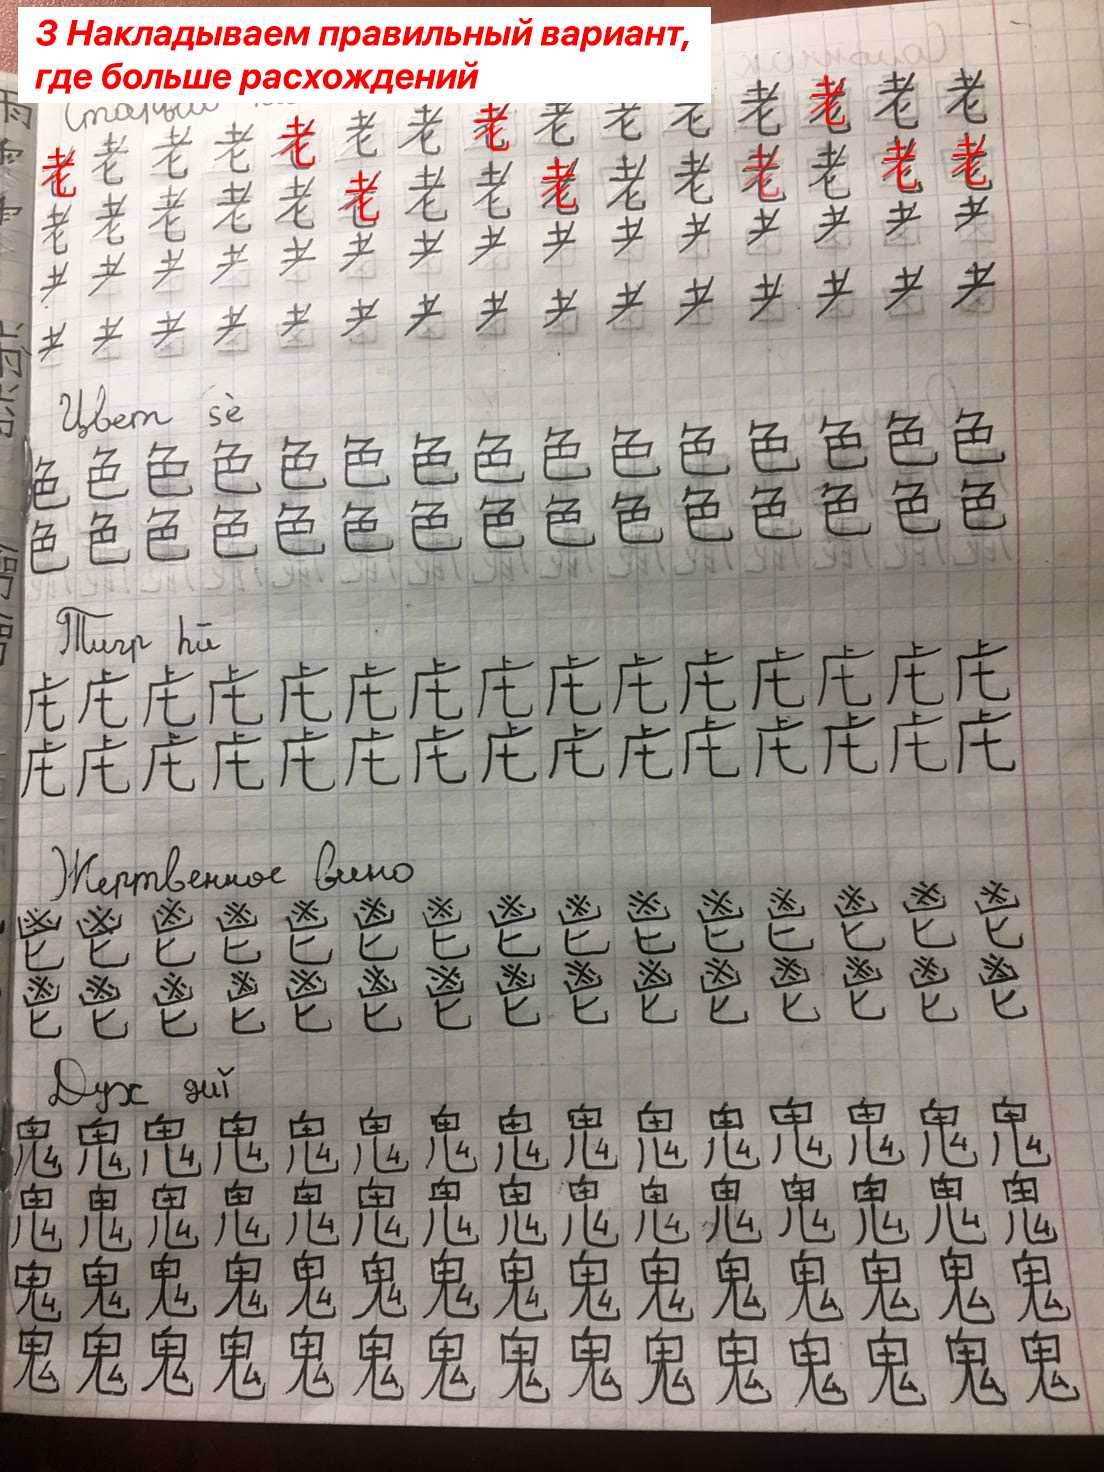 3 Накладываем правильный вариант,
где больше расхождений
Старый
老老老老老老老老老老老老老老老
老老老老老老老老老老老老老老老
耂耂耂耂耂耂耂耂耂耂耂耂耂耂耂
耂耂耂耂耂耂耂耂耂耂耂耂耂耂耂
Цвет sè
色色色色色色色色色色色色色色色
色色色色色色色色色色色色色色色
Тигр hū
虍虍虍虍虍虍虍虍虍虍虍虍虍虍虍
虍虍虍虍虍虍虍虍虍虍虍虍虍虍虍
Жертвенное вино
鬯鬯鬯鬯鬯鬯鬯鬯鬯鬯鬯鬯鬯鬯鬯
鬯鬯鬯鬯鬯鬯鬯鬯鬯鬯鬯鬯鬯鬯鬯
Дух guǐ
鬼鬼鬼鬼鬼鬼鬼鬼鬼鬼鬼鬼鬼鬼鬼
鬼鬼鬼鬼鬼鬼鬼鬼鬼鬼鬼鬼鬼鬼鬼
鬼鬼鬼鬼鬼鬼鬼鬼鬼鬼鬼鬼鬼鬼鬼
鬼鬼鬼鬼鬼鬼鬼鬼鬼鬼鬼鬼鬼鬼鬼